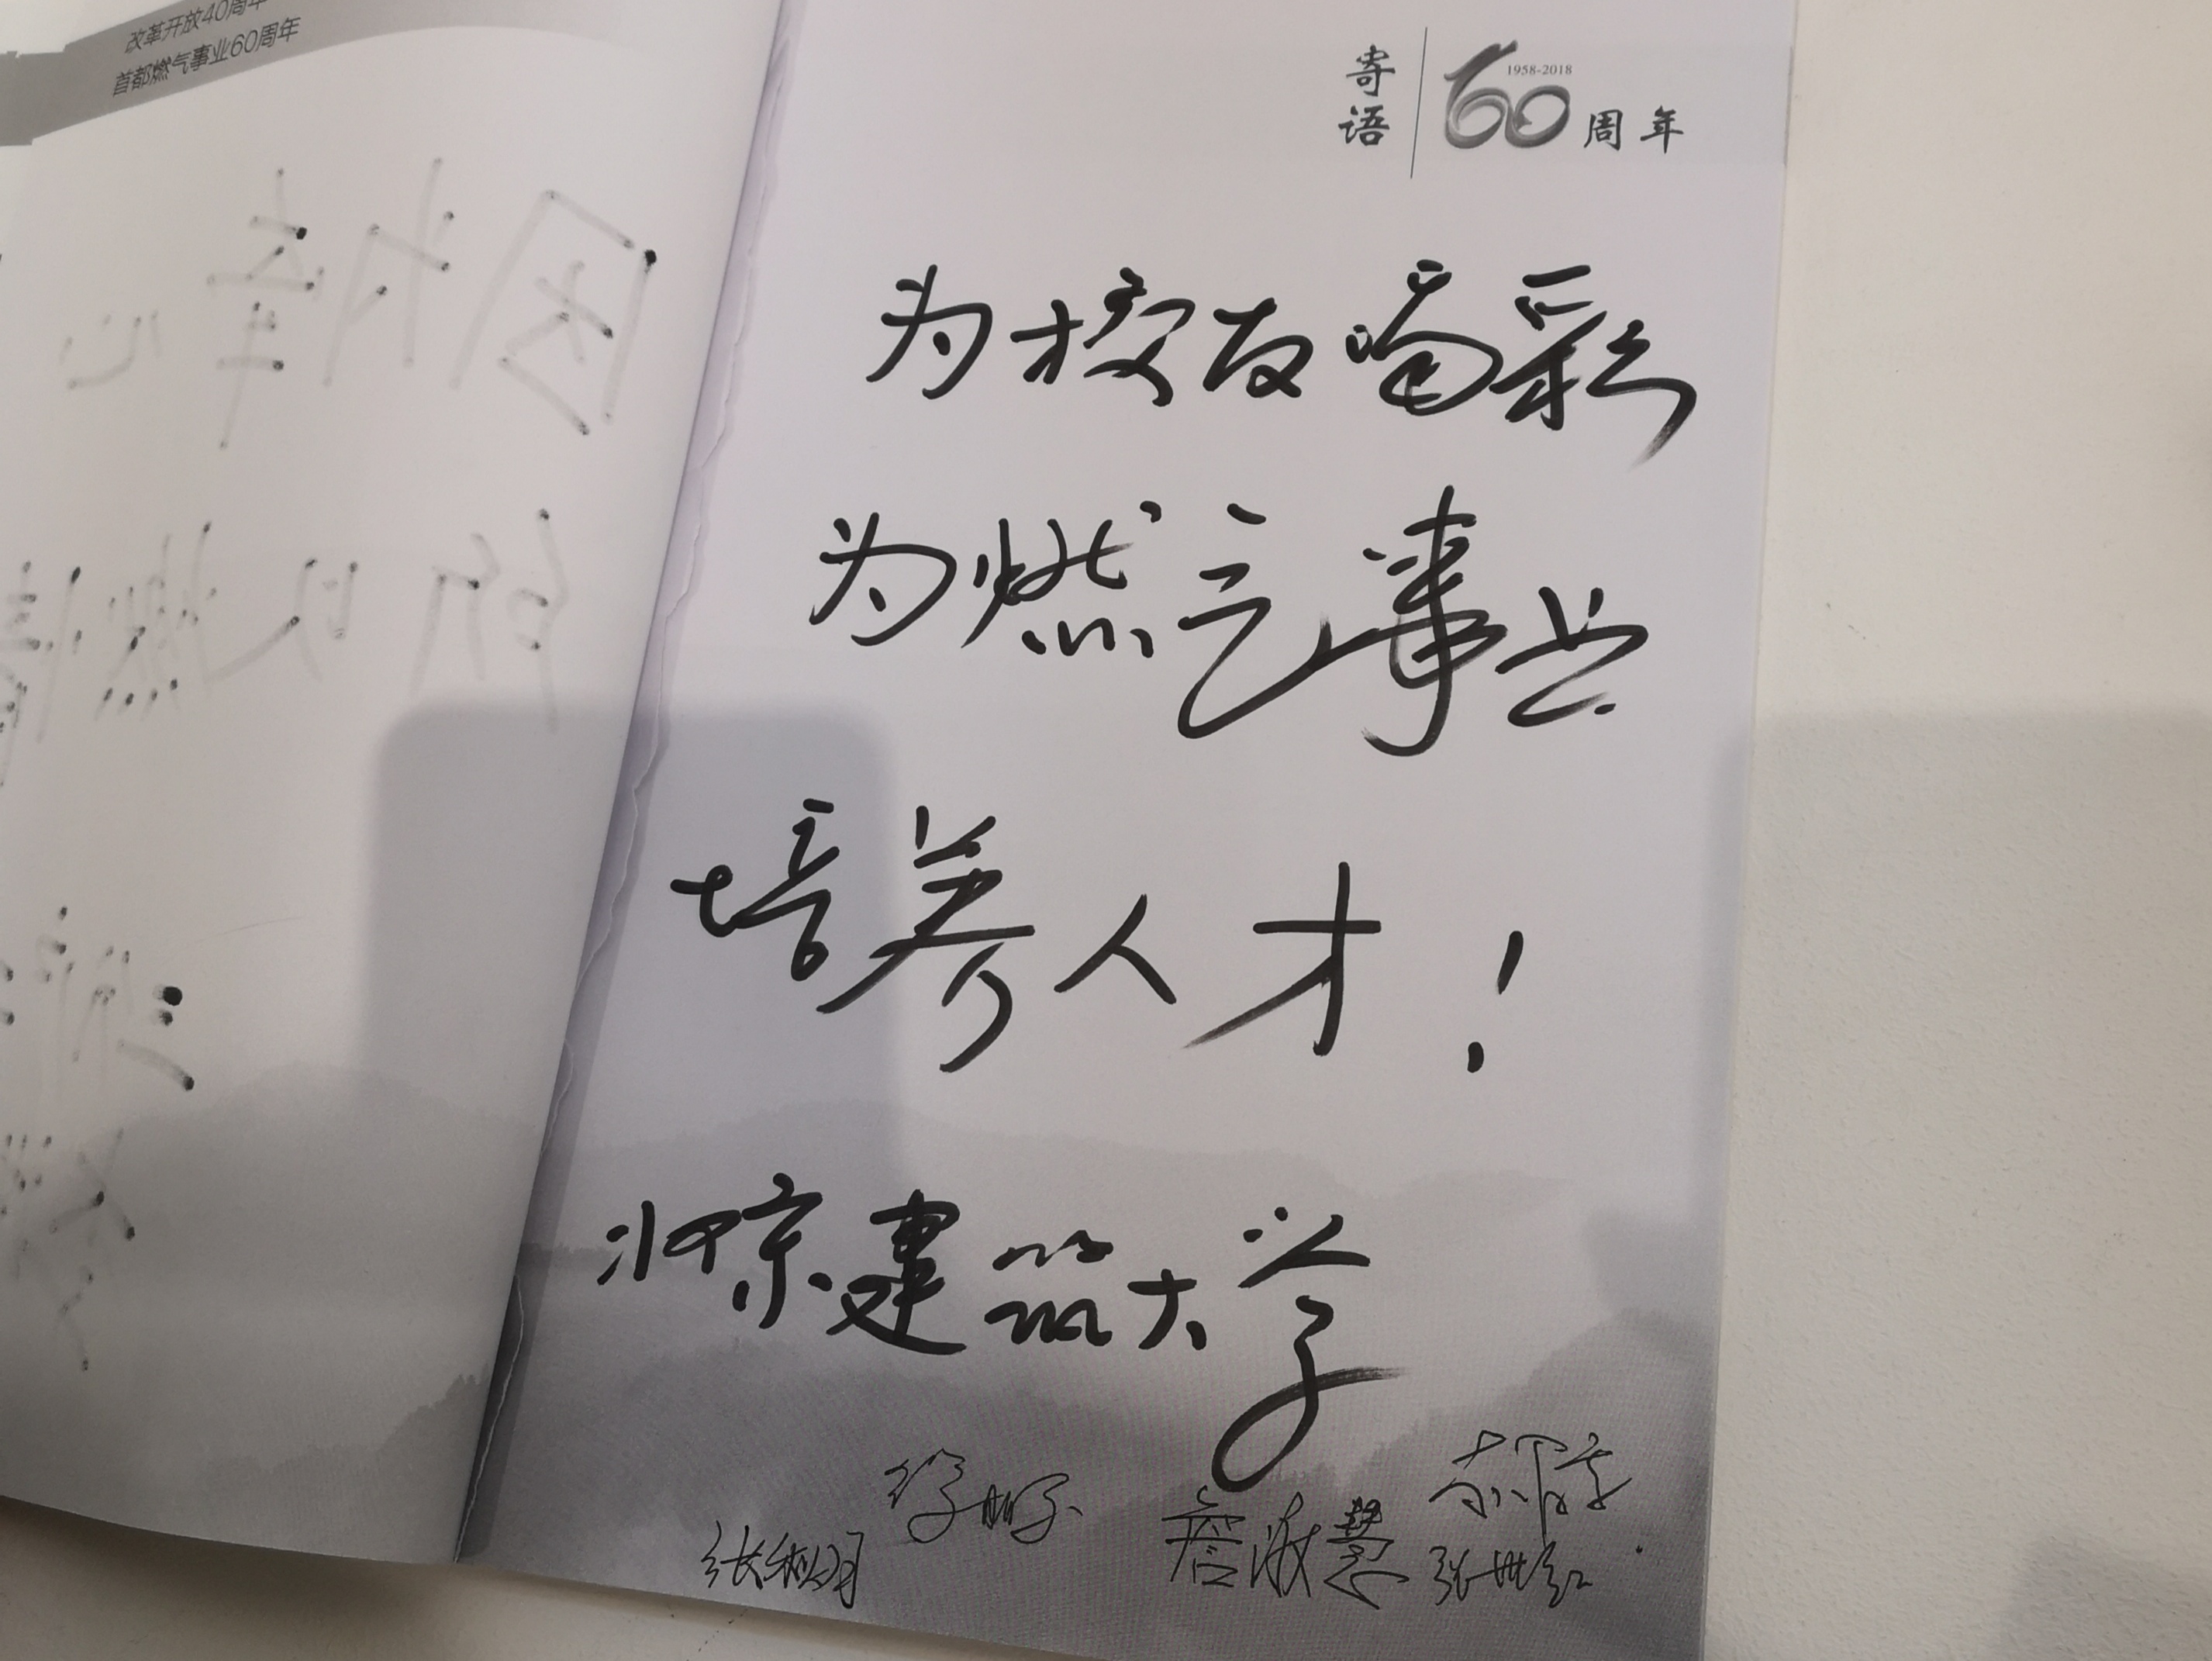 改革开放40周年
首都燃气事业60周年
寄语
1958-2018
60周年
为校友喝彩
为燃气事业
培养人才！
北京建筑大学
詹淑慧
张世红